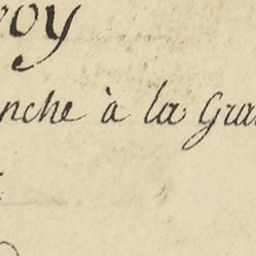 roy
anche à la Gra